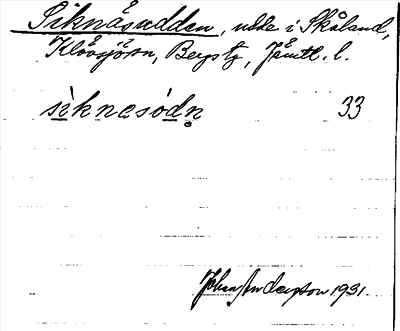 Siknäsudden, udde i Skåland,
Klövsjö sn, Bergs tg, Jämtl. l.
sìknesódn̥ 33
Johan Anderson 1931.